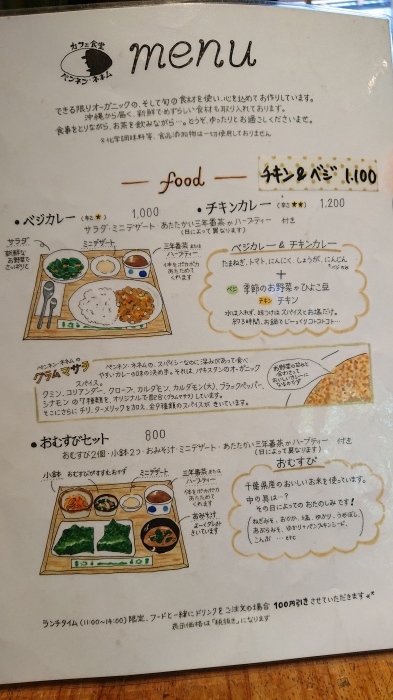 カフェ食堂
ペンネンネネム
menu
できる限りオーガニックの、そして旬の食材を使い、心を込めてお作りしています。
沖縄から届く、新鮮でめずらしい食材も取り入れております。
食事をとりながら、お茶を飲みながら…。どうぞ、ゆったりとお過ごしくださいませ。
※化学調味料等、食品添加物は一切使用しておりません
food
チキン&ベジ 1,100
・ベジカレー (辛さ★) 1,000
・チキンカレー (辛さ★★) 1,200
サラダ・ミニデザート・あたたかい三年番茶orハーブティー 付き
(日によって異なります)
サラダ
新鮮な
お野菜で
さっぱりと
ミニデザート
三年番茶または
ハーブティー
体をポカポカ
あたためて
くれます
ベジカレー & チキンカレー
たまねぎ、トマト、にんにく、しょうが、にんじん
+
ベジ 季節のお野菜やひよこ豆
チキン チキン
水は入れず、味つけはスパイスとお塩だけ。
約3時間、お鍋でじーっくりコトコトコト…
ペンネン・ネネムの
グラムマサラ
ペンネン・ネネムの、スパイシーなのに深みがあって食べ
やすいカレーの味の決め手。それは、パキスタンのオーガニック
スパイス。
クミン、コリアンダー、クローブ、カルダモン、カルダモン(大)、ブラックペッパー、
シナモン の7種類を、オリジナルで混ぜ合(グラムマサラ)しています。
そこにさらにチリ、ターメリックを加え、全9種類のスパイスが きいています。
お野菜の甘みと
合わさって
おいしいカレーに
なるのです
・おむすびセット 800
おむすび2個・小鉢2コ・おみそ汁・ミニデザート・あたたかい三年番茶orハーブティー 付き
(日によって異なります)
小鉢
ミニデザート
三年番茶または
ハーブティー
体をポカポカ
あたためて
くれます
おみそ汁
おむすび
千葉県産のおいしいお米を使っています。
中の具は…?
その日によってのおたのしみです!
こんぶ … etc
ランチタイム (11:00~14:00) 限定、フードと一緒にドリンクをご注文の場合 100円引きさせていただきます
表示価格は「税抜き」になります